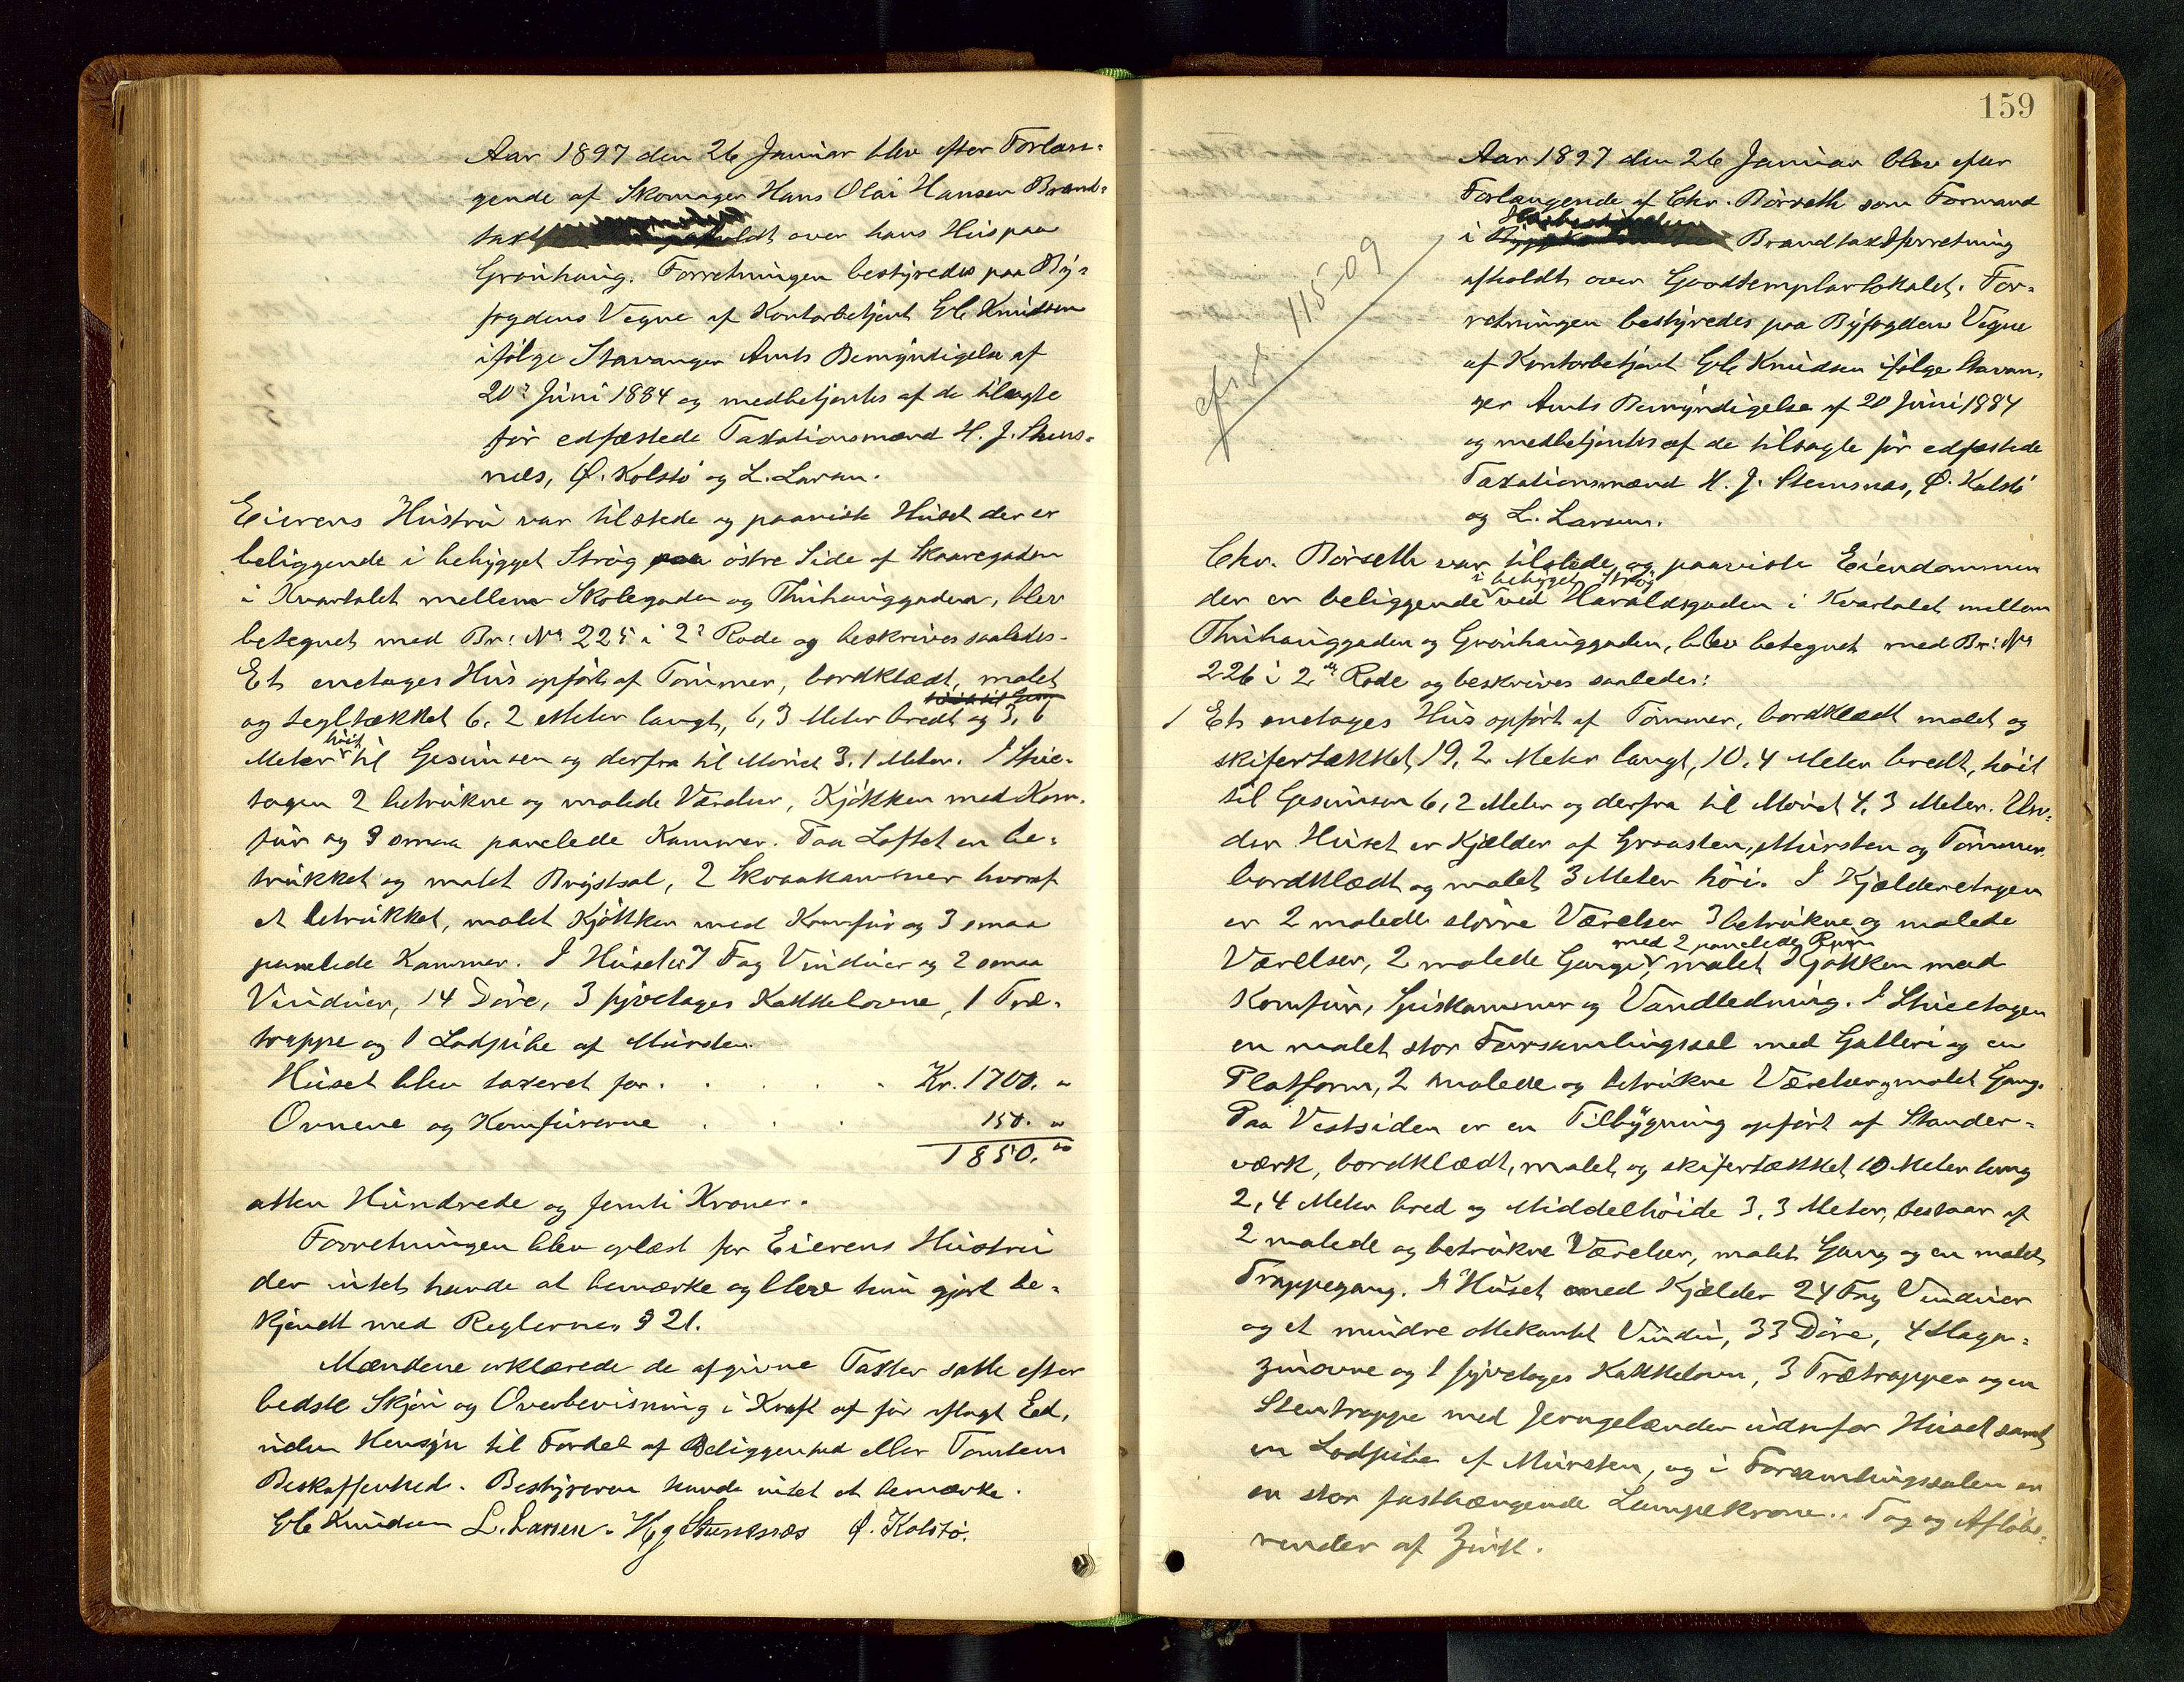 Aar 1897 den 26 Januar blev efter Forlan-
gende af Skomager Hans Olai Hansen Brand-
taxt afholdt over hans Hus paa
Grønhaug. Forretningen bestyredes paa By-
fogdens Vegne af Kontorbetjent Knudsen
ifølge Stavanger Amts Bemyndigelse af
20 Juni 1884 og medbetjentes af de tilsagte
før edfæstede Taxationsmænd H. J. Stens-
næs, Ø. Kolstø og L. Larsen.
Eierens Hustru var tilstede og paaviste Huset der er
beliggende i bebygget Strøg paa østre Side af Skaaregaden
i Kvartalet mellem Skolegaden og Thuhauggaden, blev
betegnet med Br: No 225 i 2 Rode og beskrives saaledes.
Et enetages Hus opført af Tømmer, bordklædt, malet
og tegltækket 6,2 Meter langt, 6,3 Meter bredt og 3,6
Meter høit til Gesimsen og derfra til Mønet 3,1 Meter. I Stue-
tagen 2 betrukne og malede Værelser, Kjøkken med Kom-
fur og 3 smaa panelede Kammer. Paa Loftet en be-
trukket og malet Brystsal, 2 Skraakammer hvoraf
et betrukket, malet Kjøkken med Komfur og 3 smaa
panelede Kammer. I Huset er 7 Fag Vinduer og 2 smaa
Vinduer, 14 Døre, 3 fjvetages Kakkelovne, 1 Træ-
trappe og 1 Lodpibe af Mursten.
Huset blev taxeret for . . . . . Kr. 1700. "
Ovnene og Komfurerne . . . 150. "
1850. "
atten Hundrede og femti Kroner.
Forretningen blev oplæst for Eierens Hustru
der intet havde at bemærke og blev hun gjort be-
kjendt med Reglernes § 21.
Mændene erklærede de afgivne Taxter satte efter
bedste Skjøn og Overbevisning i Kraft af før aflagt Eed,
uden Hensyn til Fordel af Beliggenhed eller Tomtens
Beskaffenhed. Bestyreren havde intet at bemærke.
Knudsen L. Larsen. H J Stensnæs Ø. Kolstø.
159
115-09
Aar 1897 den 26 Januar blev efter
Forlangende af Chr. Børseth som Formand
i Brandtaxtforretning
afholdt over Goodtemplarlokalet. For-
retningen bestyredes paa Byfogdens Vegne
af Kontorbetjent Knudsen ifølge Stavan-
ger Amts Bemyndigelse af 20 Juni 1884
og medbetjentes af de tilsagte før edfæstede
Taxationsmænd H. J. Stensnæs, Ø. Kolstø
og L. Larsen.
Chr. Børseth var tilstede og paaviste Eiendommen
der er beliggende i bebygget Strøg ved Haraldsgaden i Kvartalet mellem
Thuhauggaden og Grønhauggaden, blev betegnet med Br: No
226 i 2 Rode og beskrives saaledes:
1 Et enetages Hus opført af Tømmer, bordklædt malet og
skifertækket, 19,2 Meter langt, 10,4 Meter bredt, høit
til Gesimsen 6,2 Meter og derfra til Mønet 4,3 Meter. Un-
der Huset er Kjælder af Graasten, Mursten og Tømmer,
bordklædt og malet 3 Meter høi. I Kjælderetagen
er 2 malede større Værelser 3 betrukne og malede
Værelser, 2 malede Gange med 2 panelede Rum, malet Kjøkken med
Komfur, Spiskammer og Vandledning. I Stuetagen
en malet stor Forsamlingssal med Galleri og en
Platform, 2 malede og betrukne Værelser, malet Gang.
Paa Vestsiden er en Tilbygning opført af Stander-
værk, bordklædt, malet og skifertækket 10 Meter lang
2,4 Meter bred og Middelhøide 3,3 Meter, bestaar af
2 malede og betrukne Værelser, malet Gang og en malet
Trappegang. I Huset med Kjælder 24 Fag Vinduer
og et mindre ottekantet Vindu, 33 Døre, 4 Maga-
zinovne og 1 fjvetages Kakkelovn, 3 Trætrapper og en
Stentrappe med Jerngelænder udenfor Huset samt
en Lodpibe af Mursten, og i Forsamlingssalen en
en stor fasthængende Lampekrone. Tag og Afløbs-
render af Zink.